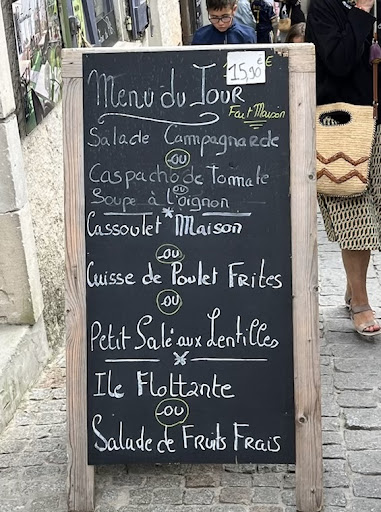 Menu du Jour
15,90 €
Fait Maison
Salade Campagnarde
ou
Caspacho de Tomate
ou
Soupe à l'oignon
Cassoulet Maison
ou
Cuisse de Poulet Frites
ou
Petit Salé aux Lentilles
Ile Flottante
ou
Salade de Fruits Frais